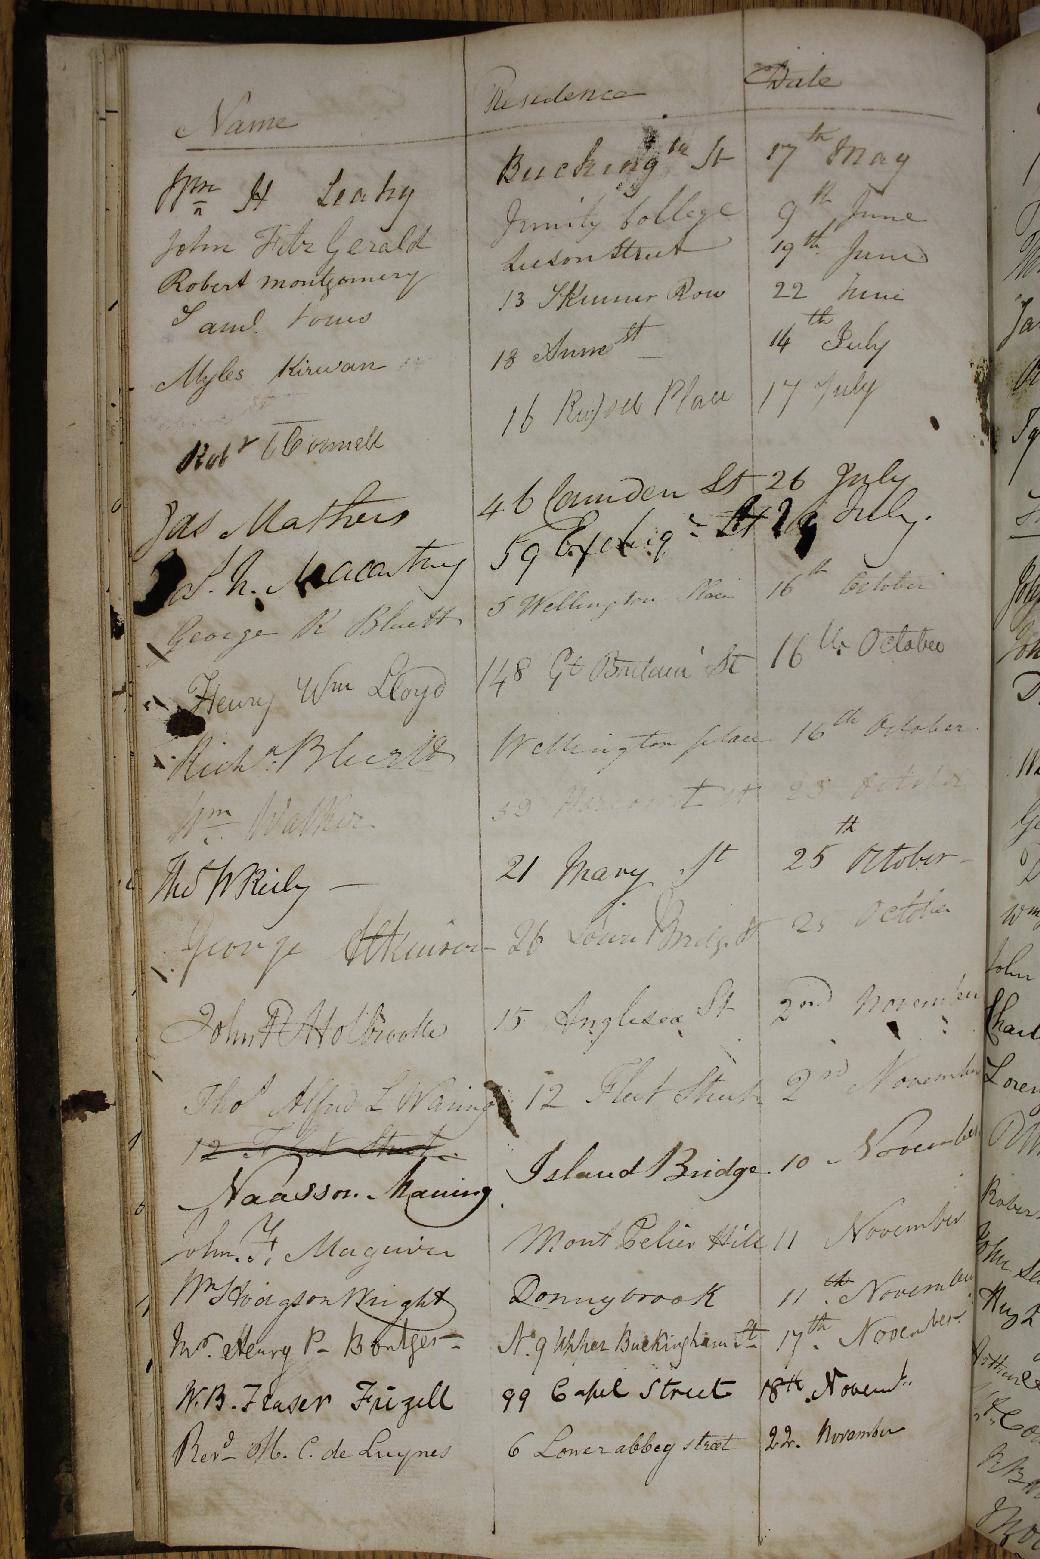 Name Residence Date
Wm H Leahy Bucking^m St 17th May
John FitzGerald Trinity College 9th June
Robert montgomery Leeson Street 19th June
Saml. 13 Skinner Row 22 June
Myles Kirwan 18 Anne St 14th July
Robt O'Connell 16 Russell Place 17 July
Jas Mathers 46 Camden St 26 July
N. Macartney 59 St July.
George R Bluett 5 Wellington Place 16th October
Henry Wm Lloyd 148 Gt Britain St 16th October
Richd. Bluett Wellington place 16th October
Wm Walker 39 Harcourt st 25 October
Thos W Reily — 21 Mary St 25th October
George Atkinson 26 Bridge St 25 October
John P Holbrooke 15 Anglesea St 2nd November
Thos Alfred L Waring 12 Fleet Street 2nd November
12 Fleet Street
Naasson Maning Island Bridge 10 November
John F. Maguire Mont Pelier Hill 11 November
Wm Hodgson Wright Donnybrook 11th November
Mr. Henry P. No. 9 Upper Buckingham St 17th November
W.B. Fraser Frizell 99 Capel Street 18th Novemr.
Revd M. C. de Luynes 6 Lower abbey street 22. November